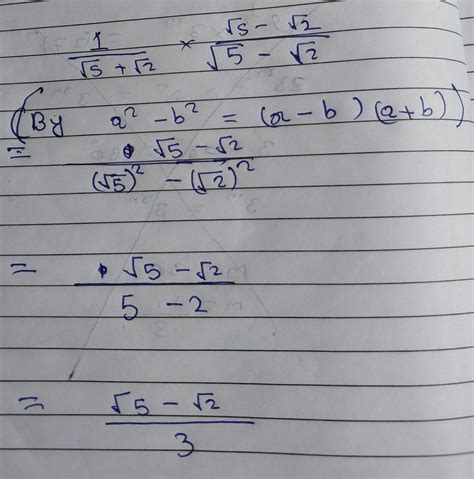 1/(√5 + √2) × (√5 - √2)/(√5 - √2)
(By a² - b² = (a - b) (a + b))
= (√5 - √2)/((√5)² - (√2)²)
= (√5 - √2)/(5 - 2)
= (√5 - √2)/3